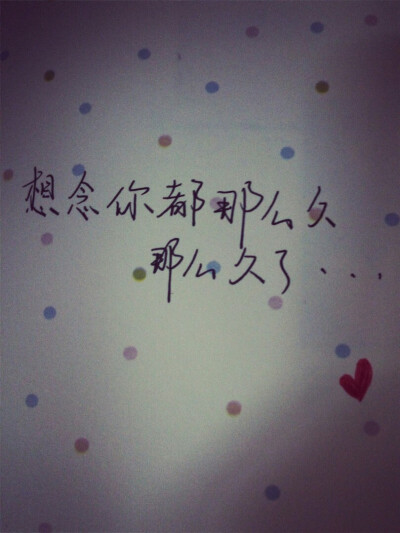 想念你都那么久
那么久了...